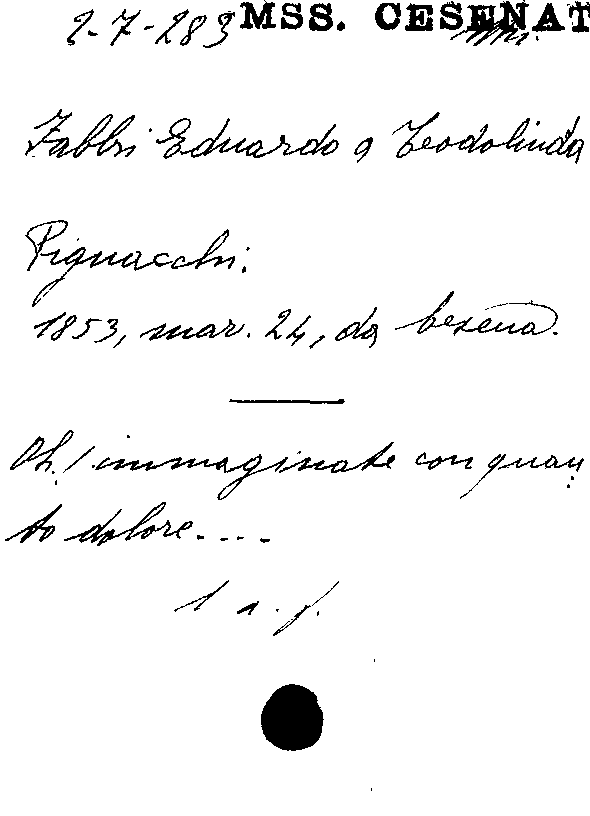 2-7-283 MSS. CESENAT
Fabbri Eduardo a Teodolinda
Pignacchi.
1853, mar. 24, da Cesena.
Oh! immaginate con quan
to dolore....
1 a. f.